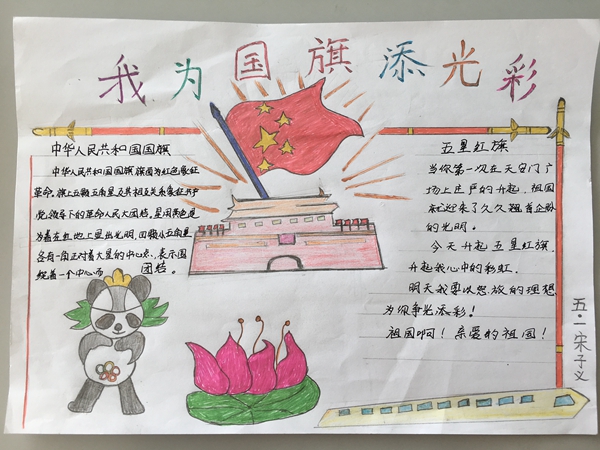 我为国旗添光彩
中华人民共和国国旗
中华人民共和国国旗旗面为红色象征
革命。旗上五颗五角星及其相互关系象征共产
党领导下的革命人民大团结。星用黄色是
为着在红地上显出光明,四颗小五角星
各有一角正对着大星的中心点,表示围
绕着一个中心而团结。
五星红旗
当你第一次在天安门广
场上庄严的升起,祖国
就迎来了久久翘首企盼
的光明。
今天升起五星红旗,
升起我心中的彩虹,
明天我要以悠放的理想
为你争光添彩!
祖国啊!亲爱的祖国!
五·一宋子义